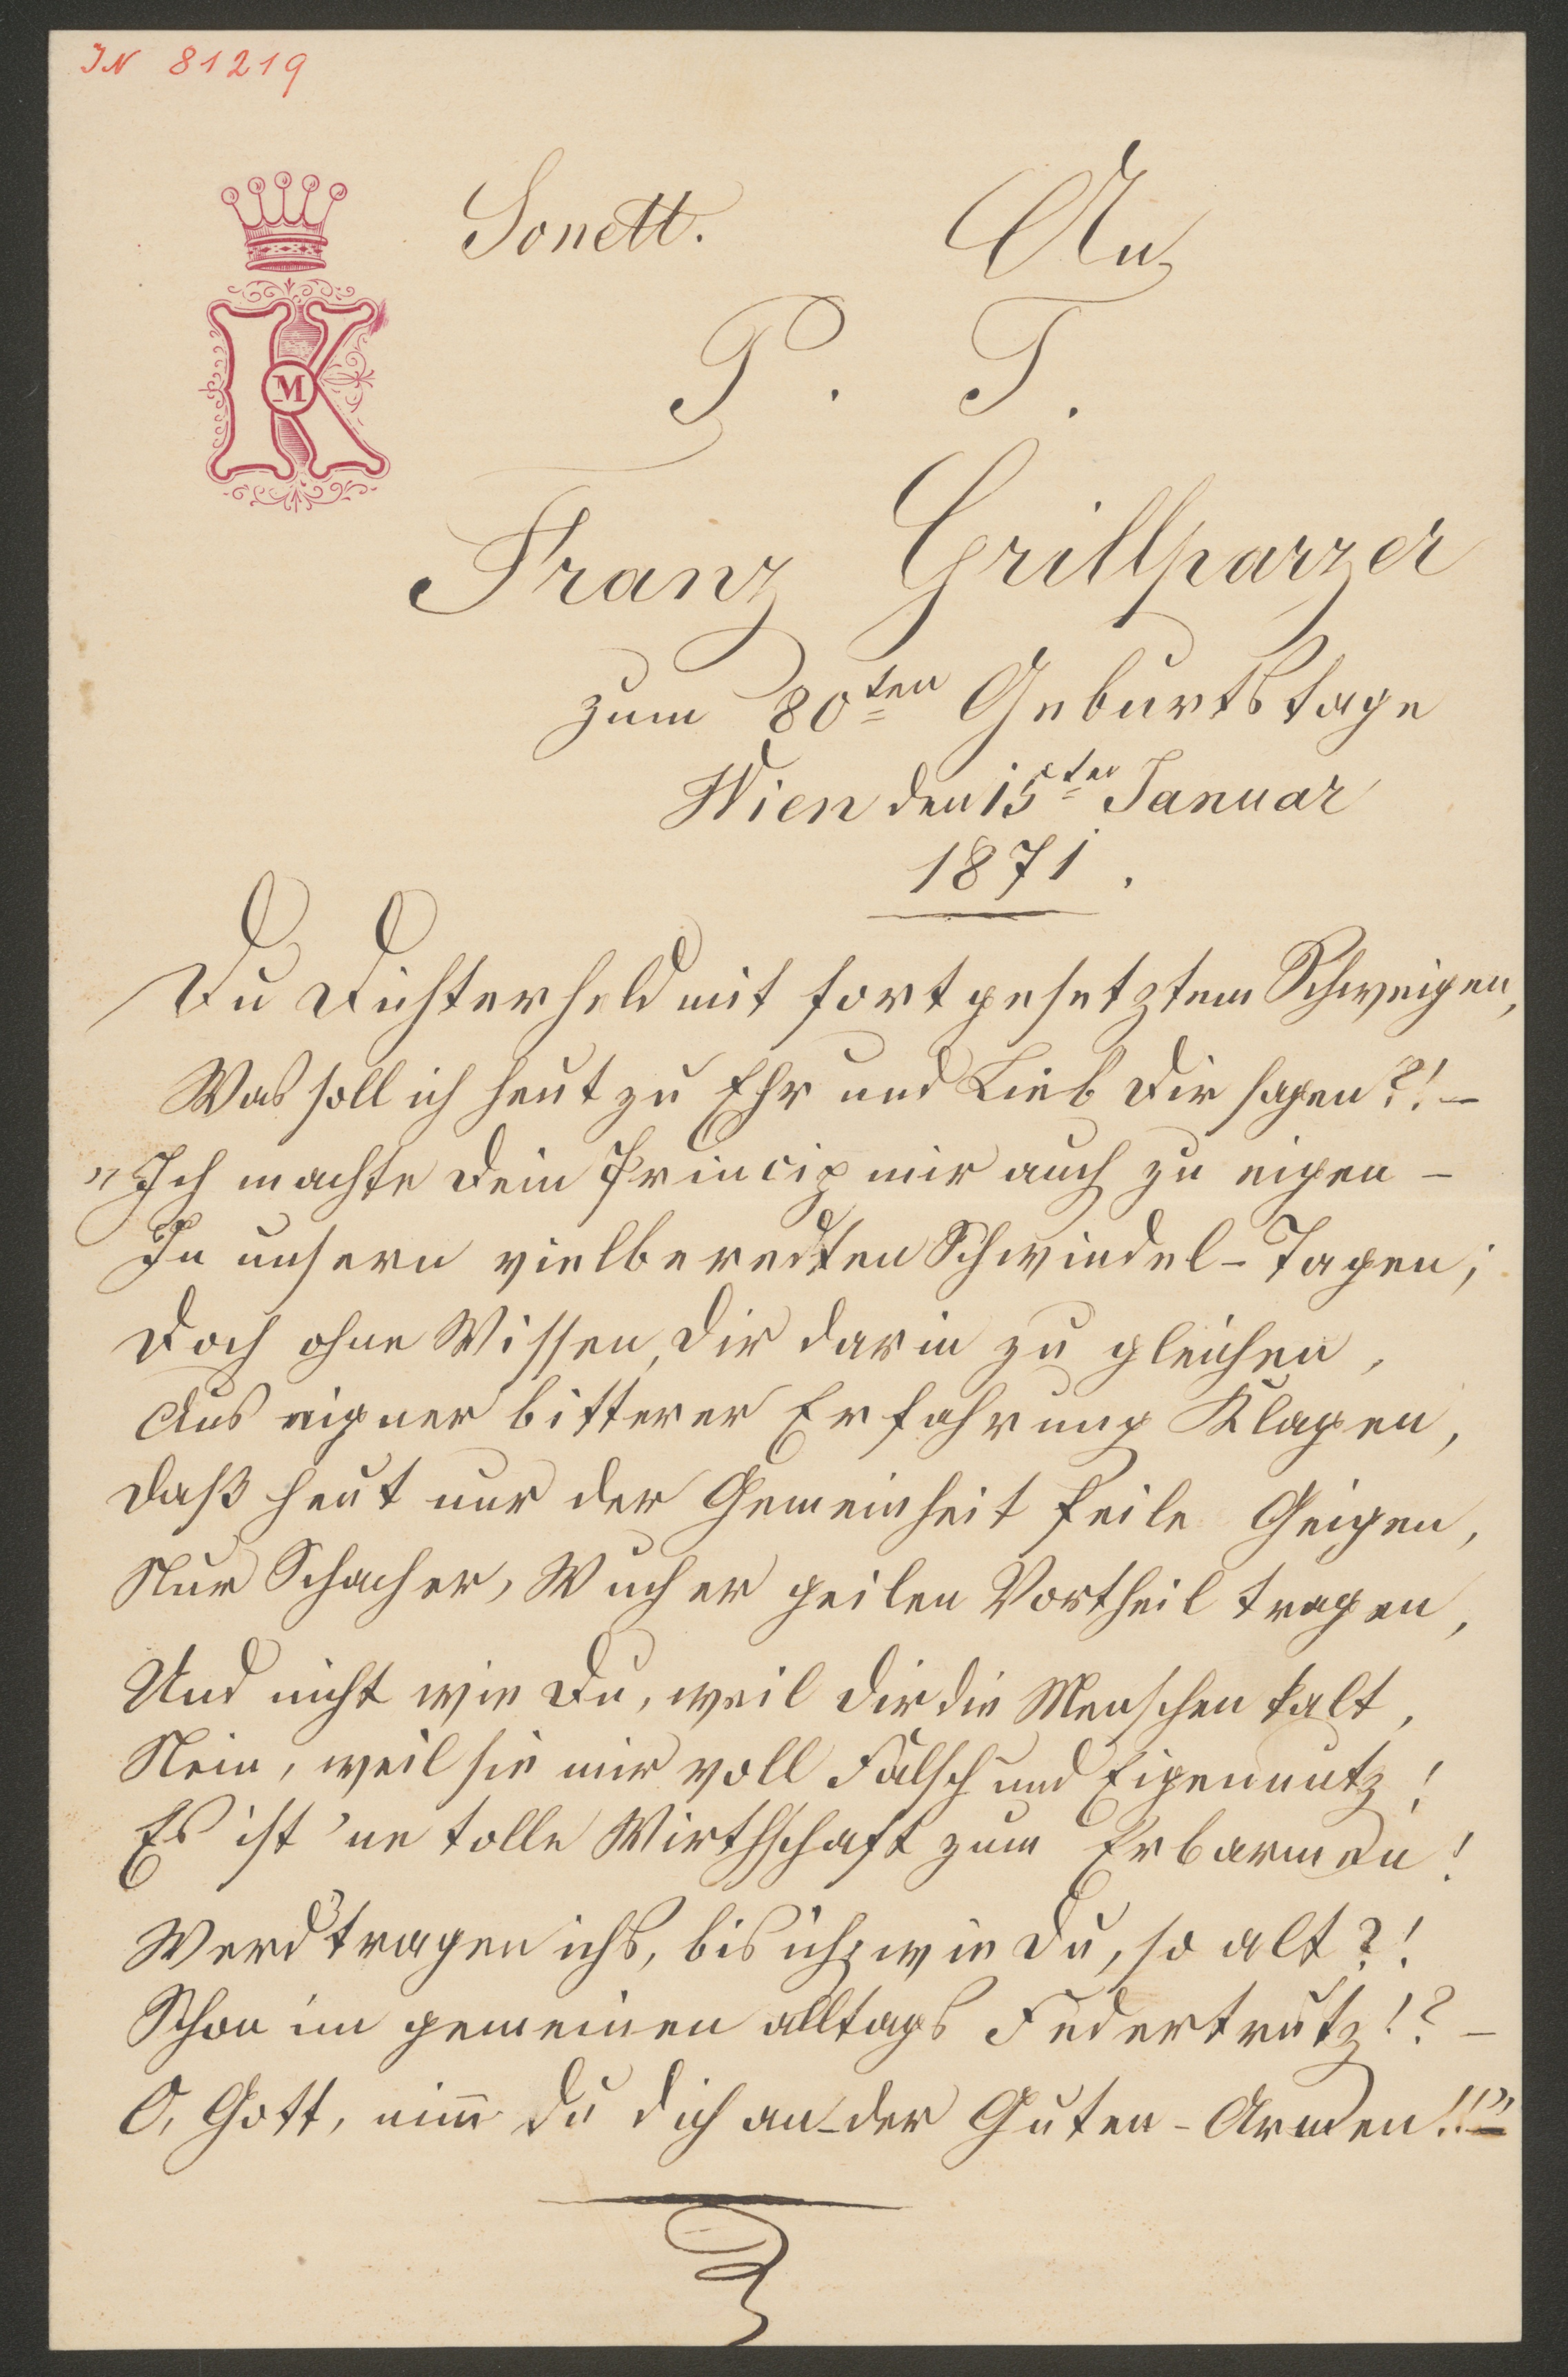 IN 81219
Sonett. An
P. T.
K
M
Franz Grillparzer
zum 80ten Geburtstage
Wien den 15ten Januar
1871.
Du Dichterheld mit fortgesetztem Schweigen,
Was soll ich heut zu Ehr und Lieb Dir sagen?! –
„Ich machte Dein Princip mir auch zu eigen –
In unsern vielberedten Schwindel-Tagen;
Doch ohne Wissen, Dir darin zu gleichen,
Aus eigner bitterer Erfahrung Klagen,
Daß heut nur der Gemeinheit feile Geigen,
Nur Schacher, Wucher geilen Vortheil tragen,
Und nicht wie Du, weil Dir die Menschen kalt,
Nein, weil sie mir voll Falsch und Eigennutz!
Es ist 'ne tolle Wirthschaft zum Erbarmen!
Werd tragen ichs, bis ich, wie Du, so alt?!
Schon im gemeinen alltags Federtrutz!? –
O, Gott, nim̄ Du Dich an – der Guten – Armen!!!“